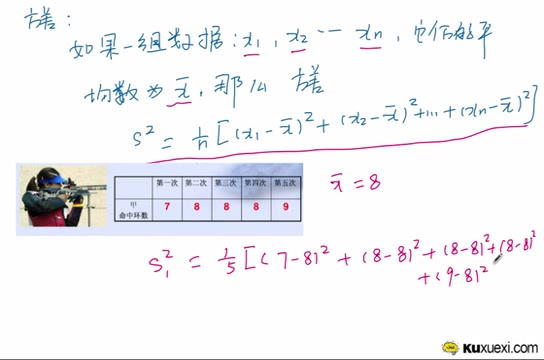 方差:
如果一组数据:x₁, x₂ … xₙ, 它们的平
均数为 x̄, 那么 方差
S² = 1/n [(x₁-x̄)² + (x₂-x̄)² + … + (xₙ-x̄)²]
第一次 第二次 第三次 第四次 第五次
甲命中环数 7 8 8 8 9
x̄ = 8
S₁² = 1/5 [(7-8)² + (8-8)² + (8-8)² + (8-8)²
+ (9-8)²
Kuxuexi.com